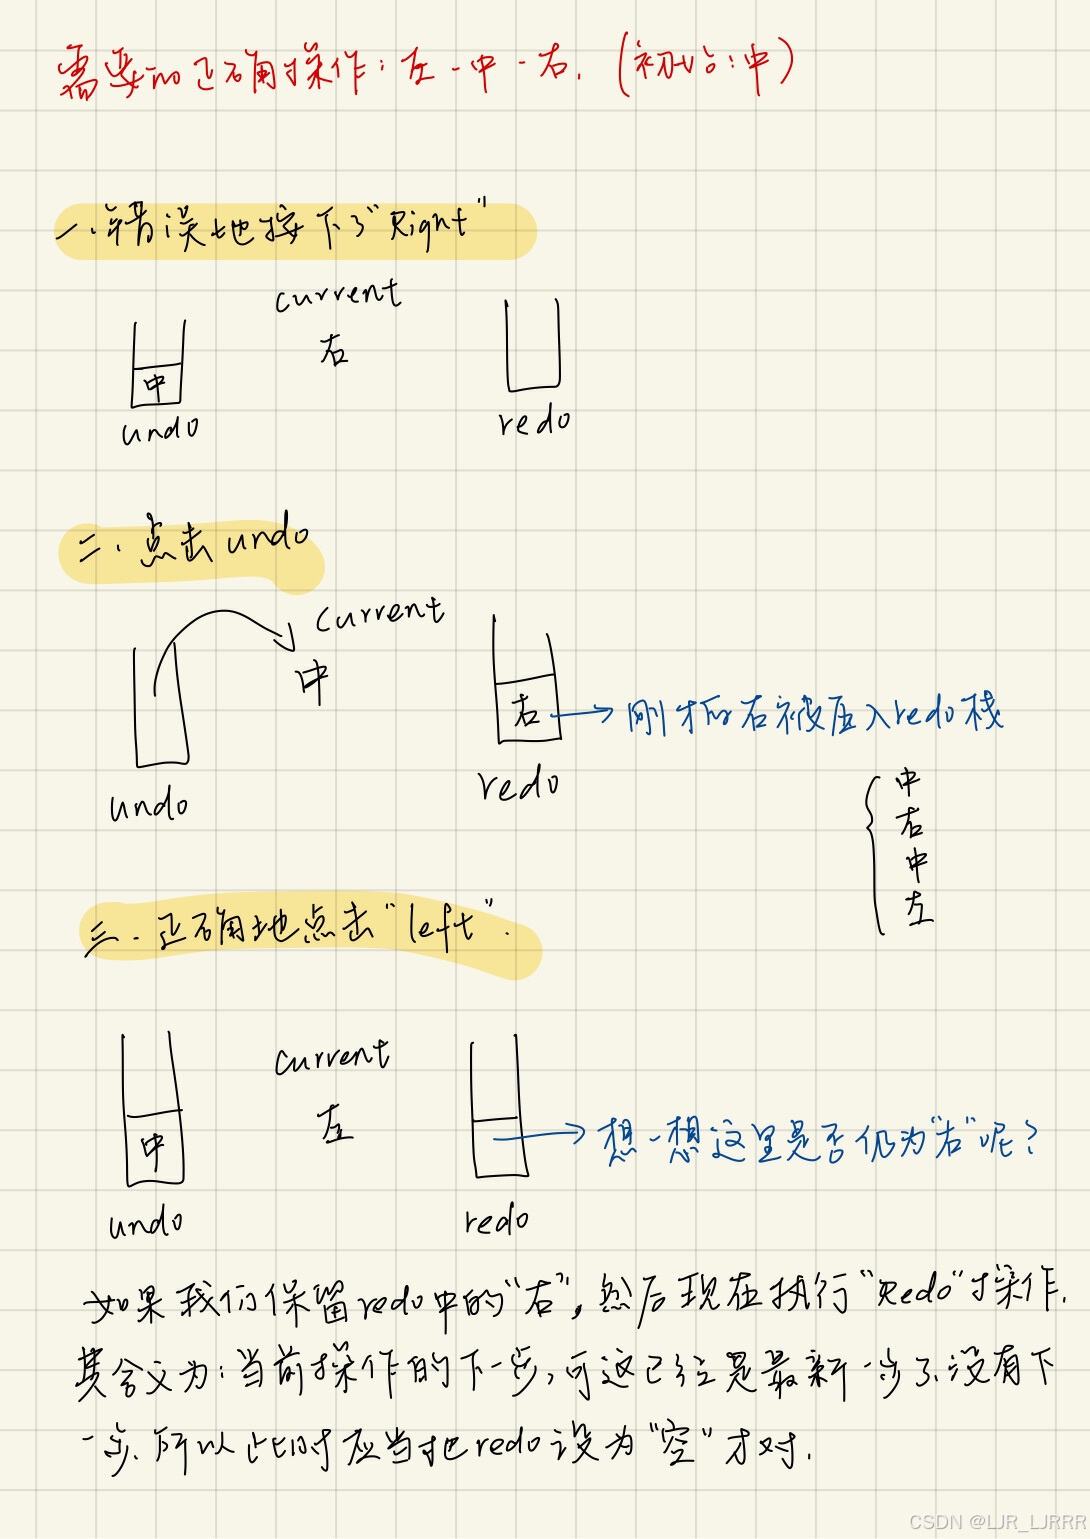 需要的正确操作：左-中-右.（初始：中）
一.错误地按下了"Right"
current
右
中
undo
redo
二.点击undo
current
中
右 → 刚才的右被压入redo栈
undo
redo
中
右
中
左
三.正确地点击"left".
current
左
中
→ 想一想这里是否仍为"右"呢？
undo
redo
如果我们保留redo中的"右"，然后现在执行"Redo"操作.
其含义为：当前操作的下一步，可这已经是最新一步了.没有下
一步.所以此时应当把redo设为"空"才对.
CSDN @LJR_LJRRR